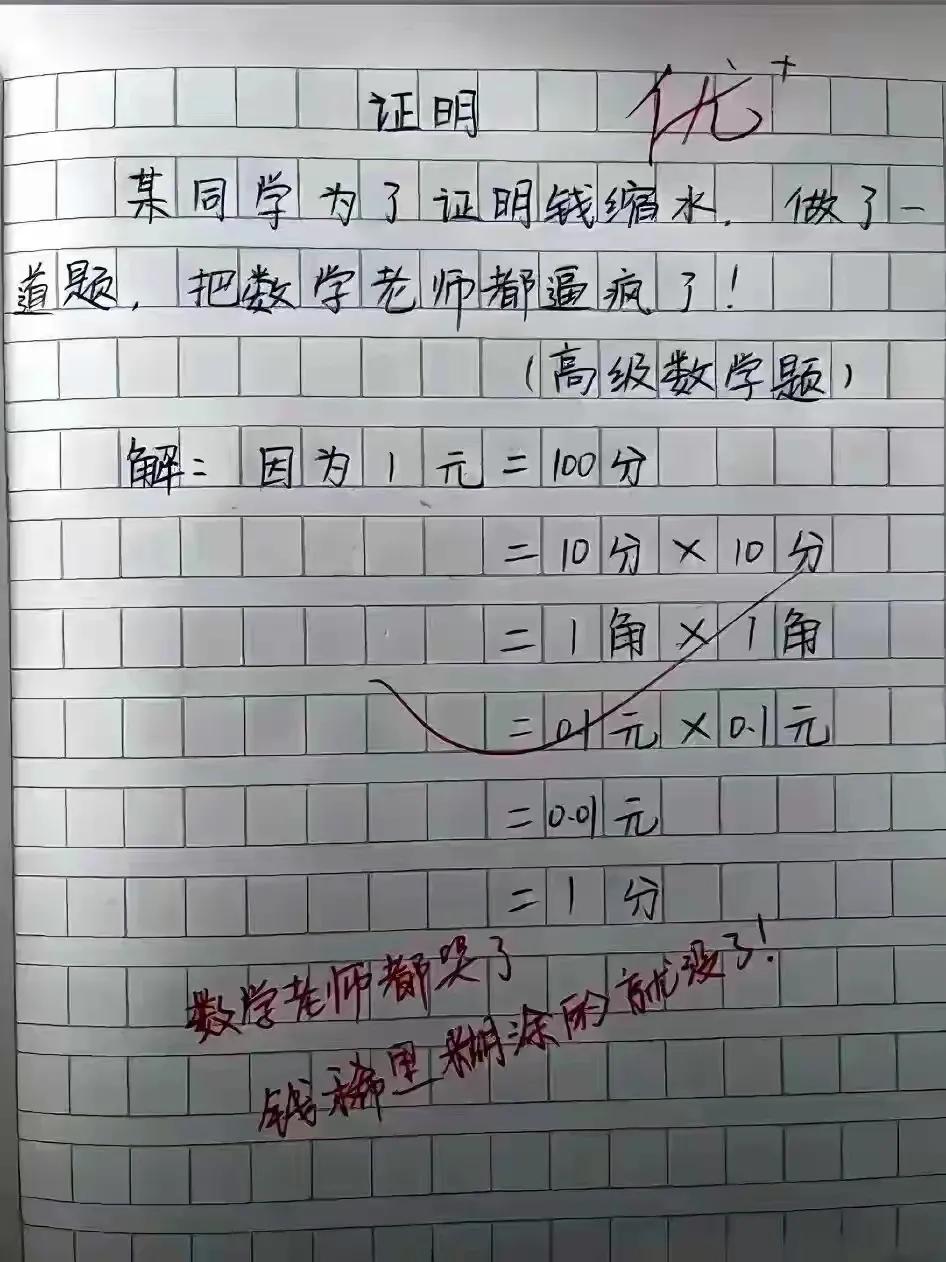 证明 优+
某同学为了证明钱缩水，做了一
道题，把数学老师都逼疯了！
（高级数学题）
解：因为1元=100分
=10分×10分
=1角×1角
=0.1元×0.1元
=0.01元
=1分
数学老师都哭了
钱稀里糊涂的就没了！